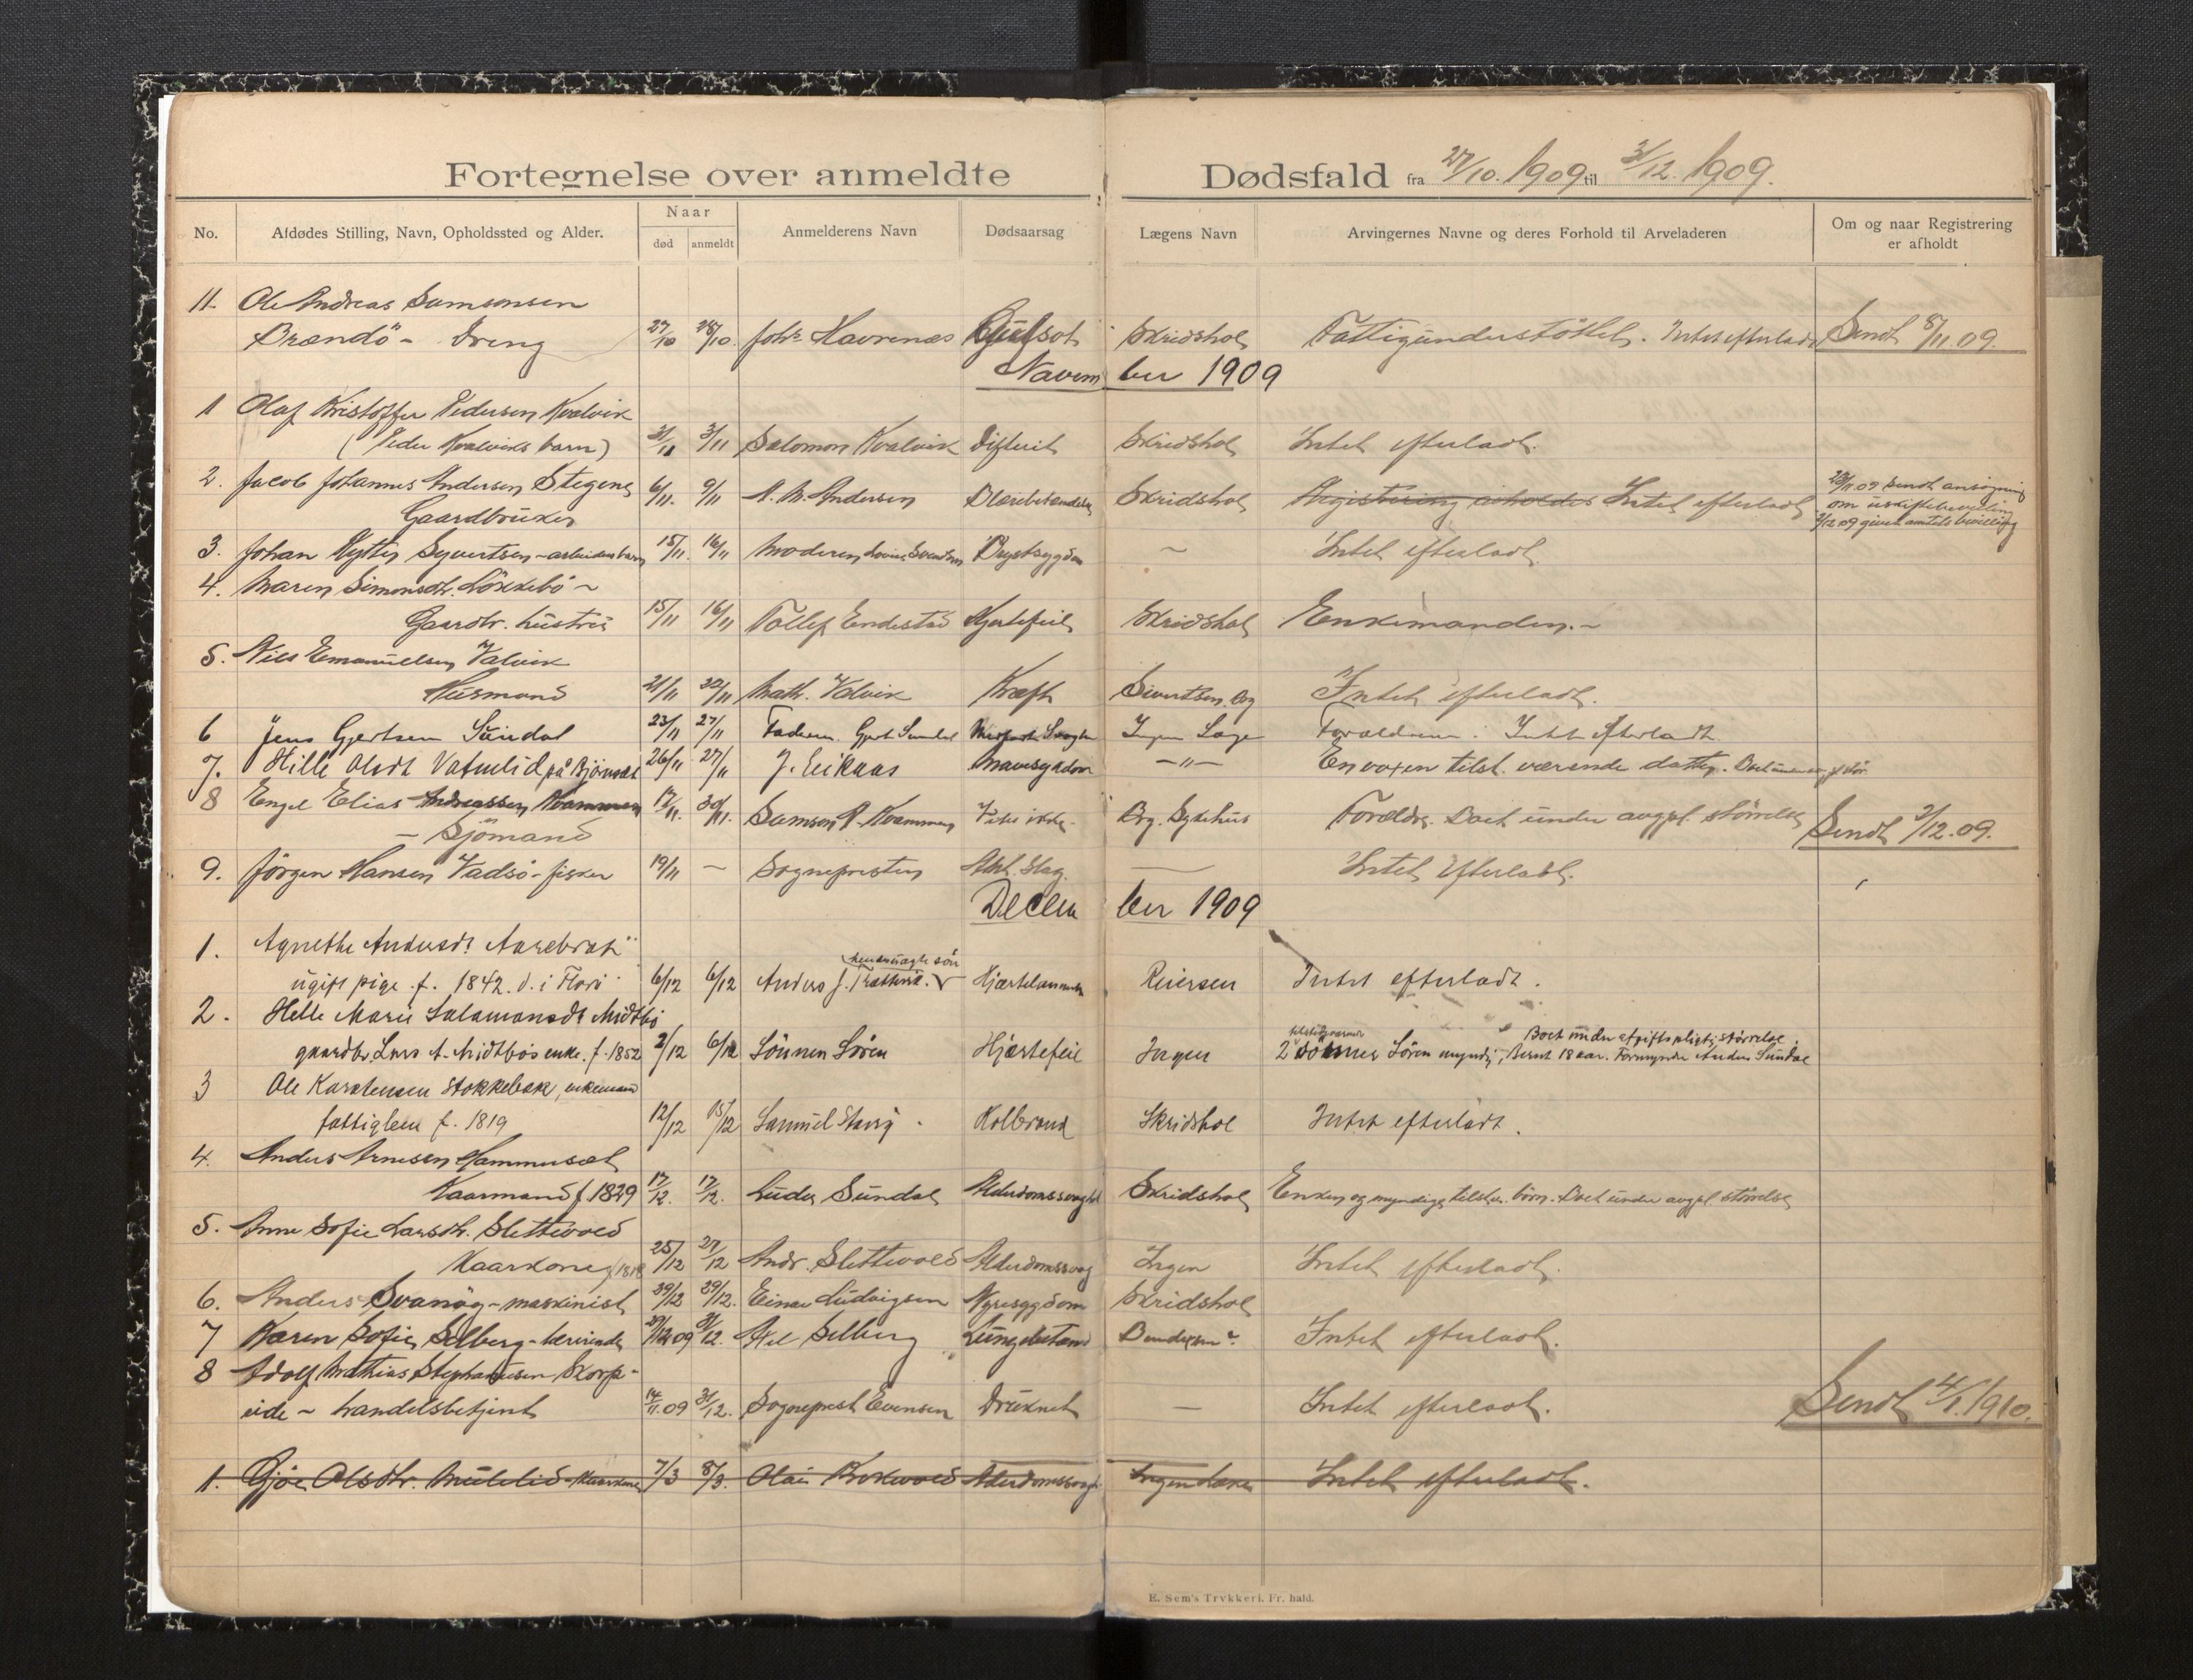 Fortegnelse over anmeldte Dødsfald fra 27/10. 1909 til 31/12. 1909.
No. Afdødes Stilling, Navn, Opholdssted og Alder. Naar død anmeldt Anmelderens Navn Dødsaarsag Lægens Navn Arvingernes Navne og deres Forhold til Arveladeren Om og naar Registrering er afholdt
11. Ole Andreas Samsonsen
Brændö - Dreng 27/10 28/10. Johs Havrenæs Gulsot Skridshol Fattigunderstöttet. Intet efterladt Sendt 8/11.09.
November 1909
1 Olaf Kristoffer Pedersen Kvalvik
(Peder Kvalviks barn) 3/11 Salomon Kvalvik Difterit Skridshol Intet efterladt.
2. Jacob Johannes Andersen Stegene 6/11. 9/11 A. M. Andersen Skridshol Intet efterladt 28/11.09 sendt ansögning
Gaardbruker om uskiftebevilling
2/12 09 given amtets bevilling
3. Johan Syvertsen - arbeidersbarn 15/11. 16/11 Moderen Brystsygdom ~ Intet efterladt.
4. Maren Simonsdtr. Lökkebö ~
Gaardbr. hustru 15/11 16/11 Tollef Endestad Hjertefeil Skridshol Enkemanden. ~
5. Nils Emanuelsen Valvik
Husmand 21/11 22/11 Math. Valvik Kræft Sivertsen Intet efterladt.
6 Jens Gjertsen Sundal 23/11 27/11 Faderen Gjert Sundal Ingen Læge Forældrene. Intet efterladt.
7. Hille Olsdt Vatnelid på Björnset 26/11 27/11 J. Eikaas Mavesygdom -"- En voxen tilst. værende datter.
8 Engel Elias Andreassen Kvammen 17/11. 30/11. Samson A. Kvammen Vites ikke. Brg. Sykehus Forældre. Boet under avgpl. störrelse Sendt 2/12.09.
- Sjömand
9. Jörgen Hansen Vadsö - fisker 19/11 - Sognepresten Slag. - Intet efterladt.
December 1909
1. Agnethe Andersdt Aarebrot
ugift pige. f. 1842. d. i Florö 6/12 6/12 Anders J. Hjærtelammelse Reiersen Intet efterladt.
2. Helle Marie Salamonsdt Midtbö
gaardbr. Lars A. Midtbös enke. f. 1852 2/12 6/12 Sönnen Sören Hjærtefeil Ingen 2 sönner Sören myndig, Bernt 18 aar. Formynder Anders Sundal
Boet under afgiftspligtig störrelse.
3 Ole Karstensen Stokkebak, enkemand
fattiglem f. 1819 12/12 15/12 Samuel Stavø. Kolbrand Skridshol Intet efterladt.
4. Anders Arnesen Hammersæt
Kaarmand f. 1829 17/12. 17/12. Luder Sundal Alderdomssvaghet Skridshol Enken og myndige tilst.v. börn. Boet under avgpl. störrelse
5. Anne Sofie Larsdtr. Slettevold
Kaarkone f 1818 25/12 27/12 Andr. Slettevold Alderdomssvag Ingen Intet efterladt.
6. Anders Svanöy - maskinist 29/12 29/12. Einar Ludvigsen Nyresygdom Skridshol
7 Karen Sofie Selberg - lærerinde 12 09 31/12. Axel Selberg Lungebetænd Bendixen Intet efterladt.
8 Adolf Mathias Stephanusen Skorp-
eide - handelsbetjent 14/11.09 31/12. Sogneprest Evensen Druknet - Intet efterladt. Sendt 4/1.1910.
1. Gjöe Olsdtr. Mulelid - Kaarkone 7/3 8/3. Olai Kokvold Alderdomssvagh. Ingen læge Intet efterladt.
E. Sem's Trykkeri. Fr. hald.